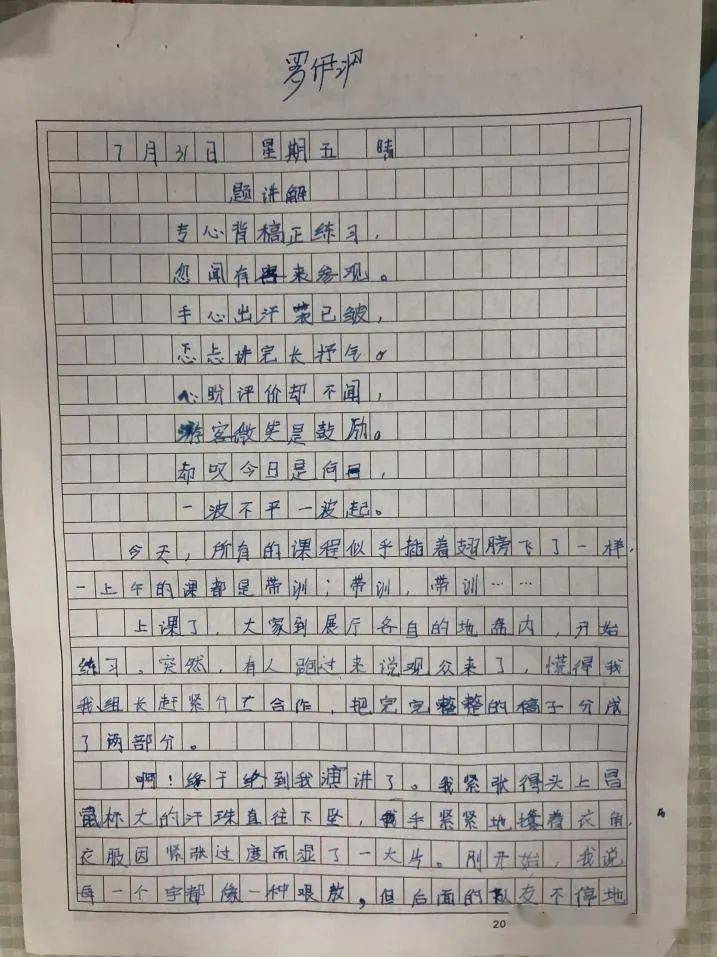 罗伊汧
7月31日 星期五 晴
题讲解
专心背稿正练习，
忽闻有客来参观。
手心出汗装已皱，
忐忑讲完长抒气。
心盼评价却不闻，
游客微笑是鼓励。
却叹今日是何日，
一波不平一波起。
今天，所有的课程似乎插着翅膀飞了一样，
一上午的课都是带训；带训，带训……
上课了，大家到展厅各自的地盘内，开始
练习。突然，有人跑过来说观众来了，慌得我
我组长赶紧分工合作，把完完整整的稿子分成
了两部分。
啊！终于轮到我演讲了。我紧张得头上冒
鼠标大的汗珠直往下坠，我手紧紧地搓着衣角，
衣服因紧张过度而湿了一大片。刚开始，我说
每一个字都像一种艰，但后面的队友不停地
20